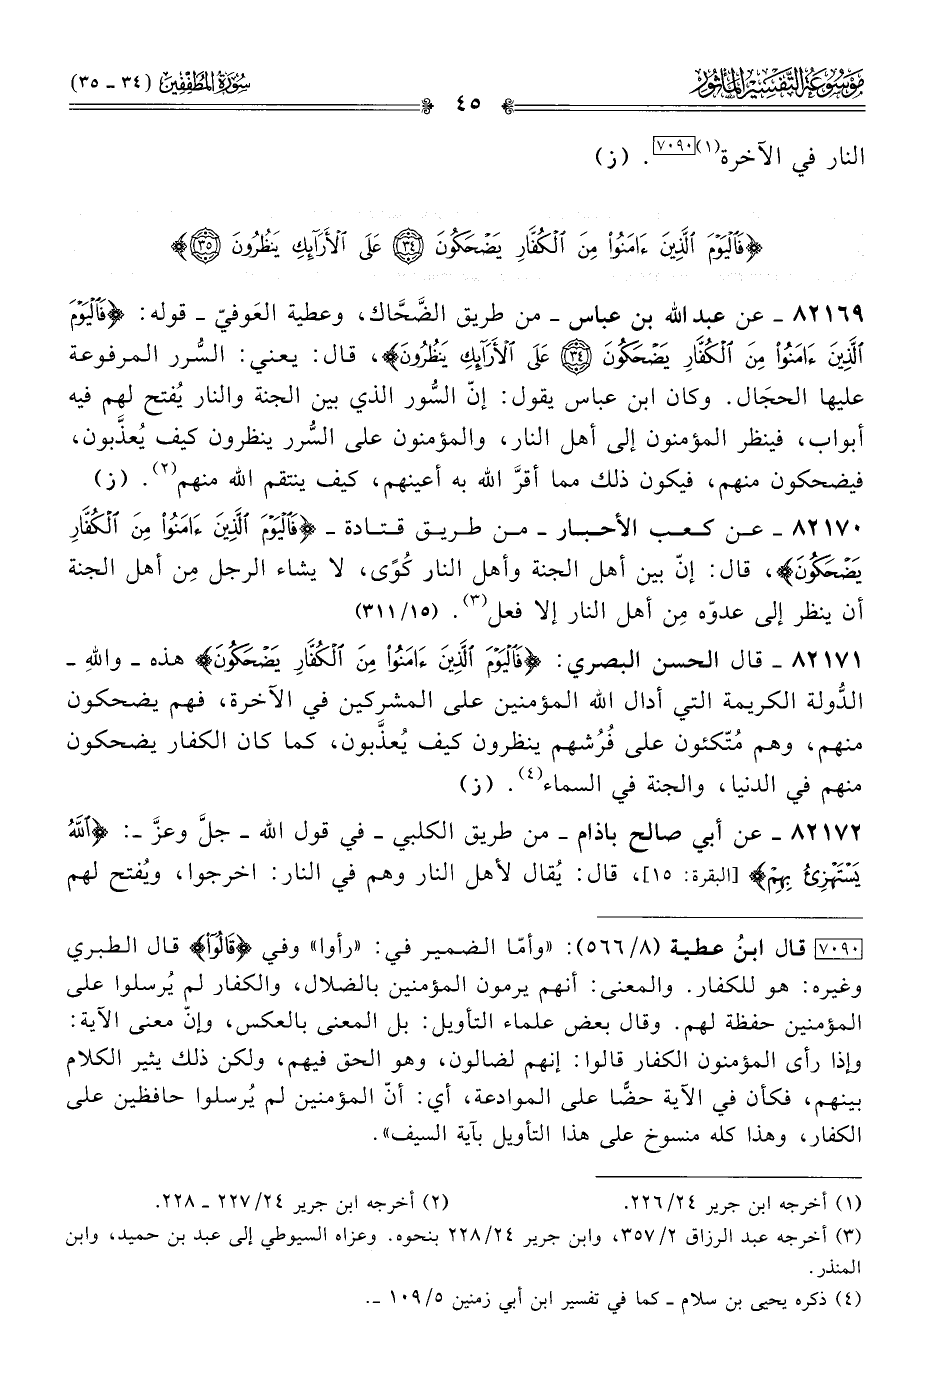 موسوعة التفسير المأثور
٤٥
سورة المطففين (٣٤ ـ ٣٥)
النار في الآخرة(١)[٧٠٩٠]. (ز)
﴿فَٱلۡيَوۡمَ ٱلَّذِينَ ءَامَنُواْ مِنَ ٱلۡكُفَّارِ يَضۡحَكُونَ ٣٤ عَلَى ٱلۡأَرَآئِكِ يَنظُرُونَ ٣٥﴾
٨٢١٦٩ ـ عن عبد الله بن عباس ـ من طريق الضَّحَّاك، وعطية العَوفيّ ـ قوله: ﴿فَٱلۡيَوۡمَ
ٱلَّذِينَ ءَامَنُواْ مِنَ ٱلۡكُفَّارِ يَضۡحَكُونَ ٣٤ عَلَى ٱلۡأَرَآئِكِ يَنظُرُونَ﴾، قال: يعني: السُّرر المرفوعة
عليها الحجَال. وكان ابن عباس يقول: إنّ السُّور الذي بين الجنة والنار يُفتح لهم فيه
أبواب، فينظر المؤمنون إلى أهل النار، والمؤمنون على السُّرر ينظرون كيف يُعذَّبون،
فيضحكون منهم، فيكون ذلك مما أقرَّ الله به أعينهم، كيف ينتقم الله منهم(٢). (ز)
٨٢١٧٠ ـ عن كعب الأحبار ـ من طريق قتادة ـ ﴿فَٱلۡيَوۡمَ ٱلَّذِينَ ءَامَنُواْ مِنَ ٱلۡكُفَّارِ
يَضۡحَكُونَ﴾، قال: إنّ بين أهل الجنة وأهل النار كُوًى، لا يشاء الرجل مِن أهل الجنة
أن ينظر إلى عدوّه مِن أهل النار إلا فعل(٣). (٣١١/١٥)
٨٢١٧١ ـ قال الحسن البصري: ﴿فَٱلۡيَوۡمَ ٱلَّذِينَ ءَامَنُواْ مِنَ ٱلۡكُفَّارِ يَضۡحَكُونَ﴾ هذه ـ واللهِ ـ
الدُّولة الكريمة التي أدال الله المؤمنين على المشركين في الآخرة، فهم يضحكون
منهم، وهم مُتّكئون على فُرُشهم ينظرون كيف يُعذَّبون، كما كان الكفار يضحكون
منهم في الدنيا، والجنة في السماء(٤). (ز)
٨٢١٧٢ ـ عن أبي صالح باذام ـ من طريق الكلبي ـ في قول الله ـ جلَّ وعزَّ ـ: ﴿ٱللَّهُ
يَسۡتَهۡزِئُ بِهِمۡ﴾ [البقرة: ١٥]، قال: يُقال لأهل النار وهم في النار: اخرجوا، ويُفتح لهم
[٧٠٩٠] قال ابنُ عطية (٥٦٦/٨): «وأمّا الضمير في: «رأوا» وفي ﴿قَالُوٓاْ﴾ قال الطبري
وغيره: هو للكفار. والمعنى: أنهم يرمون المؤمنين بالضلال، والكفار لم يُرسلوا على
المؤمنين حفظة لهم. وقال بعض علماء التأويل: بل المعنى بالعكس، وإنّ معنى الآية:
وإذا رأى المؤمنون الكفار قالوا: إنهم لضالون، وهو الحق فيهم، ولكن ذلك يثير الكلام
بينهم، فكأن في الآية حضًّا على الموادعة، أي: أنّ المؤمنين لم يُرسلوا حافظين على
الكفار، وهذا كله منسوخ على هذا التأويل بآية السيف».
(١) أخرجه ابن جرير ٢٢٦/٢٤.
(٢) أخرجه ابن جرير ٢٢٧/٢٤ ـ ٢٢٨.
(٣) أخرجه عبد الرزاق ٣٥٧/٢، وابن جرير ٢٢٨/٢٤ بنحوه. وعزاه السيوطي إلى عبد بن حميد، وابن
المنذر.
(٤) ذكره يحيى بن سلام ـ كما في تفسير ابن أبي زمنين ١٠٩/٥ ـ.